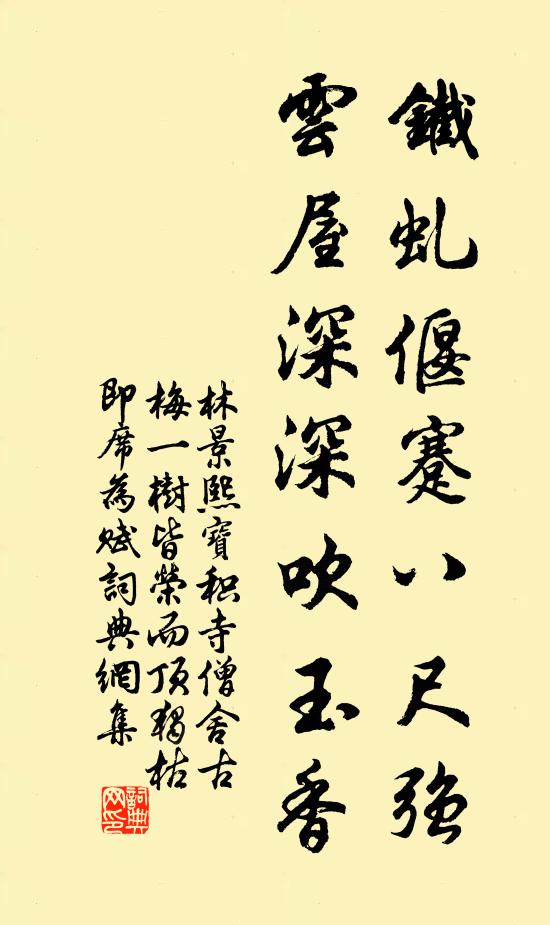 鐵虬偃蹇八尺強
雲屋深深吹玉香
林景熙寶積寺僧舍古
梅一樹皆榮而頂獨枯
即席為賦詞典網集
詞典网印